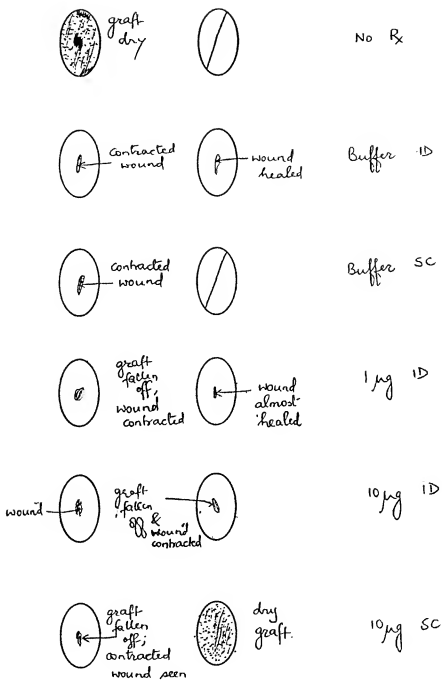 graft
dry
No Rx
contracted
wound
wound
healed
Buffer ID
contracted
wound
Buffer SC
graft
fallen
off;
wound
contracted
wound
almost
healed
1 µg ID
wound
graft
fallen
off &
wound
contracted
10 µg ID
graft
fallen
off;
contracted
wound seen
dry
graft.
10 µg SC